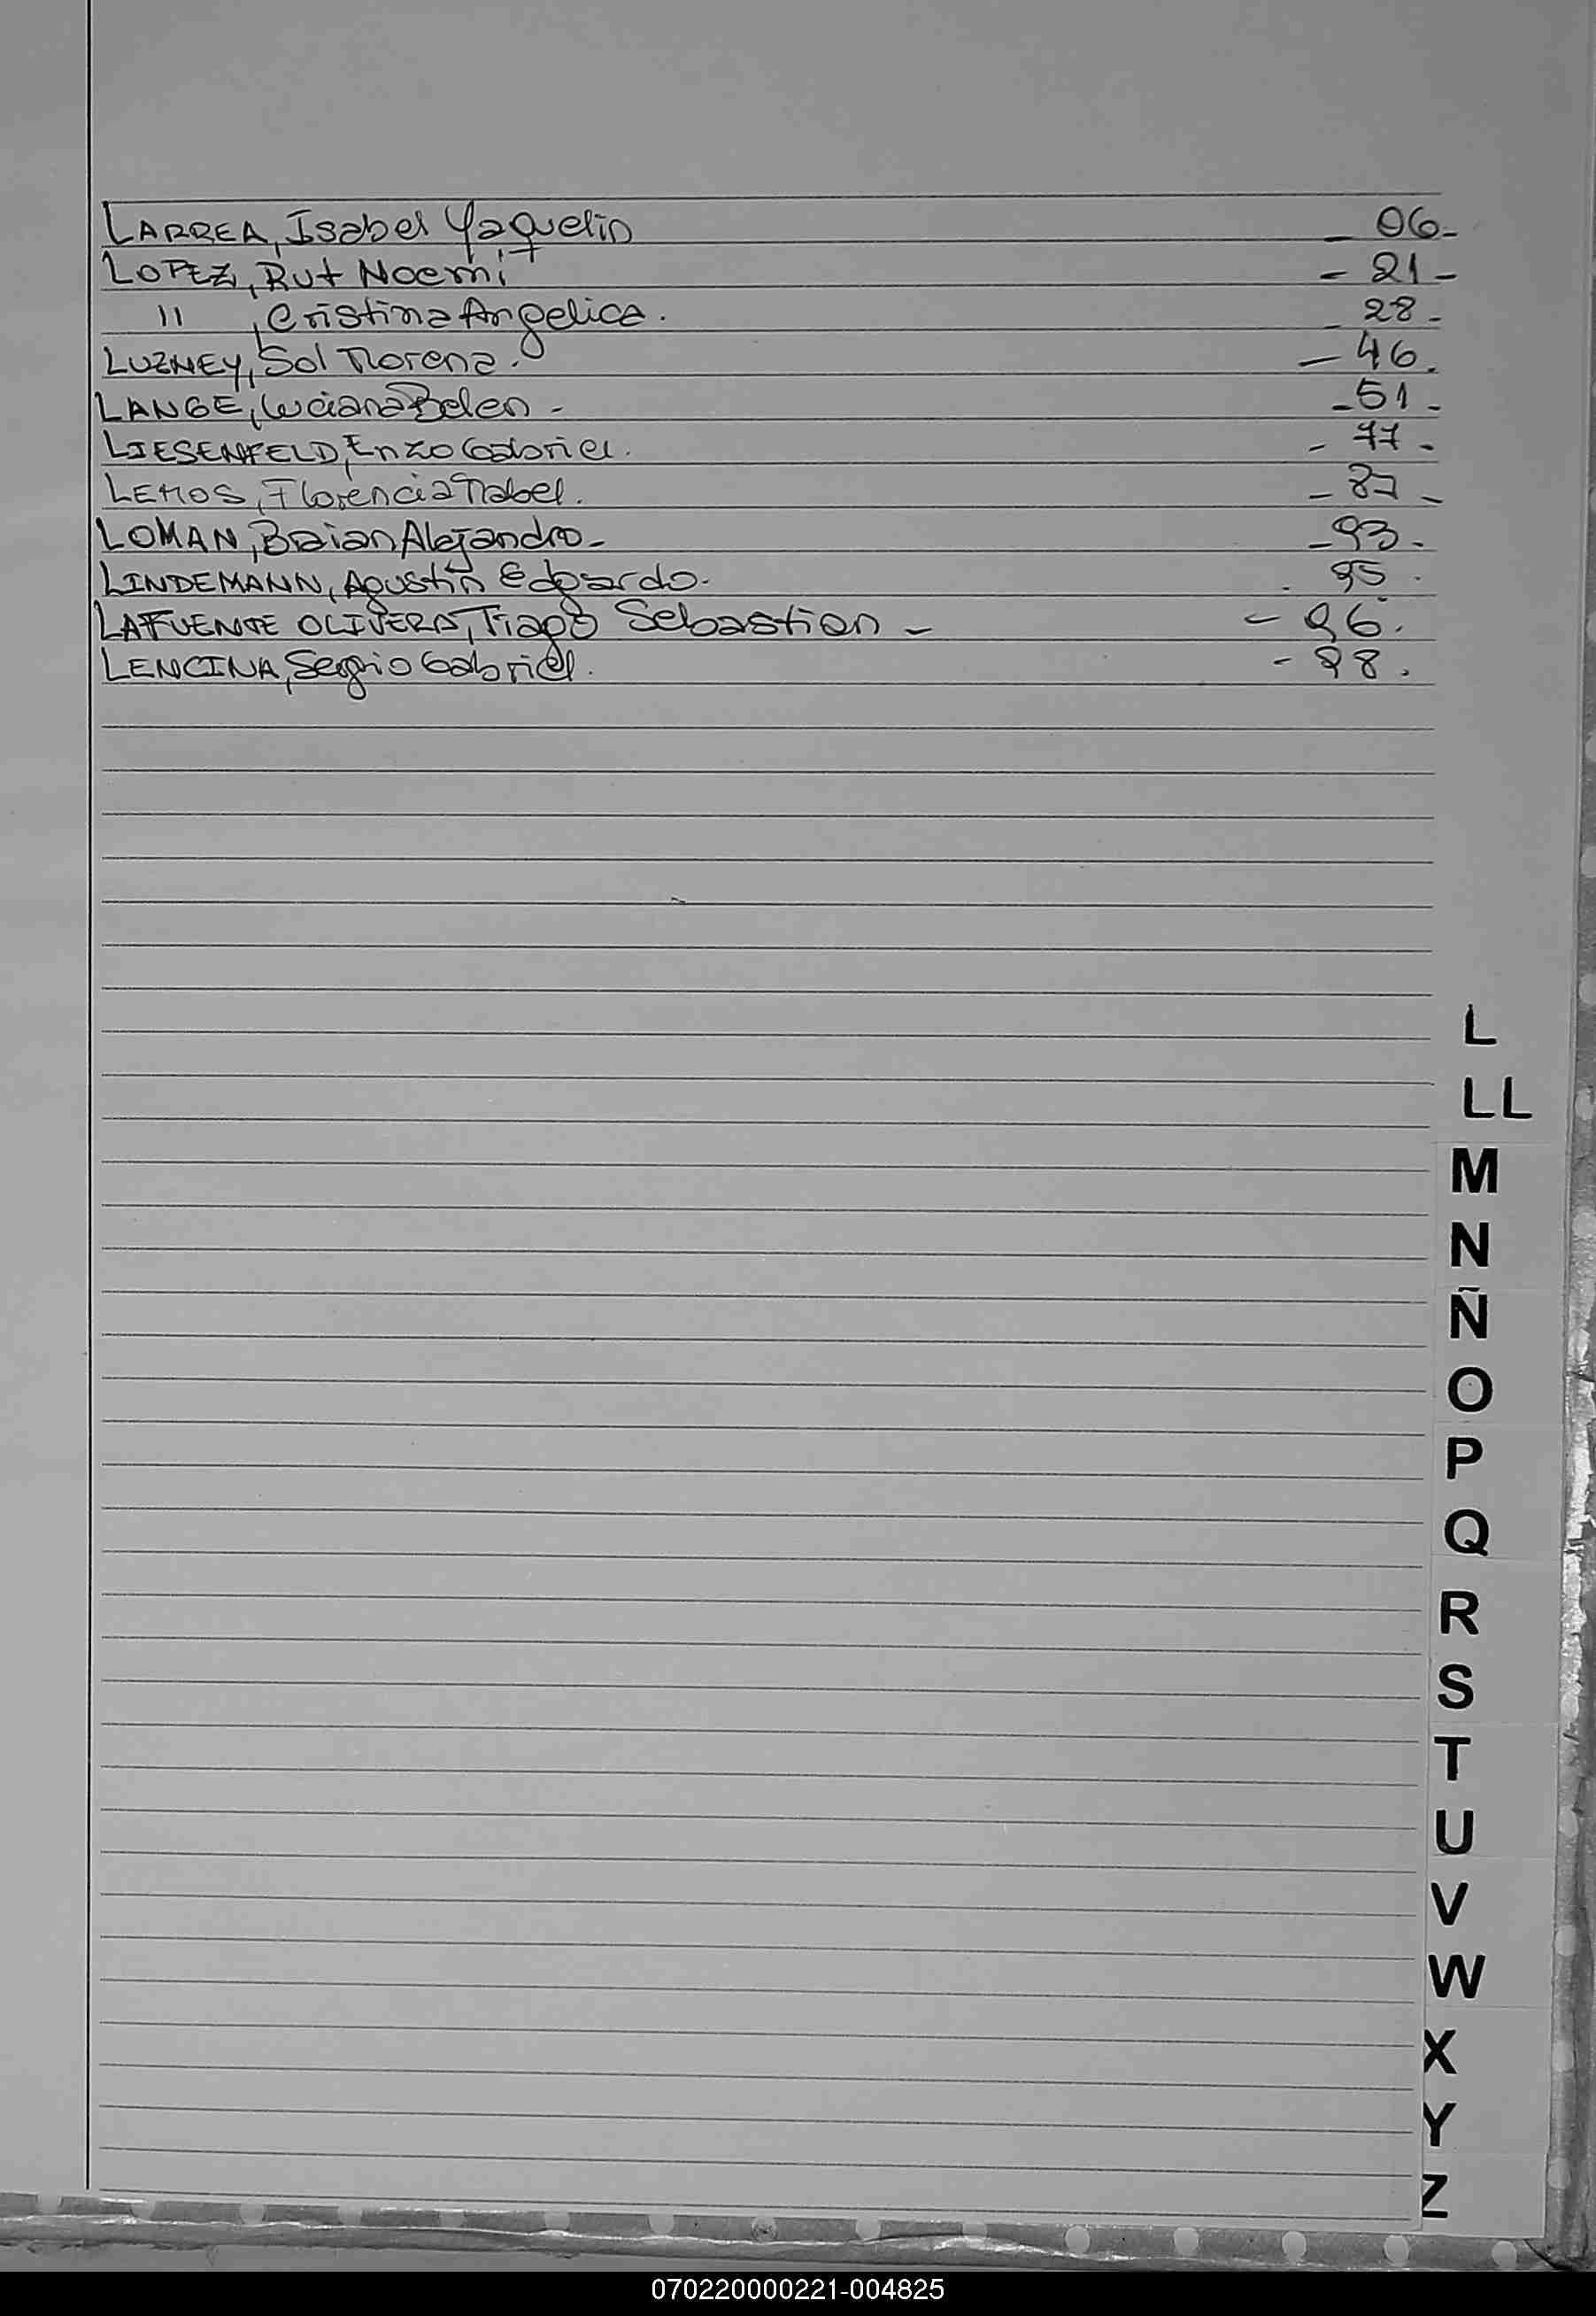 LARREA, Isabel Yaquelin _ 06-
LOPEZ, Rut Noemi - 21-
" , Cristina Angelica. _ 28-
LUZNEY, Sol Morena. - 46.
LANGE, Luciana Belen - -51-
LIESENFELD, Enzo Gabriel. - 77-
LEMOS, Florencia Mabel. - 87-
LOMAN, Braian Alejandro- -93.
LINDEMANN, Agustin Edgardo. . 95.
LAFUENTE OLIVERA, Tiago Sebastian - - 96.
LENCINA, Sergio Gabriel. - 98.
L
LL
M
N
Ñ
O
P
Q
R
S
T
U
V
W
X
Y
Z
070220000221-004825